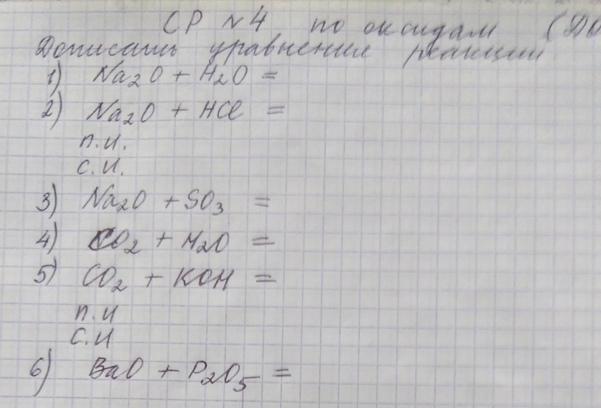 СР №4 по оксидам (До
Дописать уравнения реакции
1) Na₂O + H₂O =
2) Na₂O + HCl =
п.и.
с.и.
3) Na₂O + SO₃ =
4) CO₂ + H₂O =
5) CO₂ + KOH =
п.и
с.и
6) BaO + P₂O₅ =